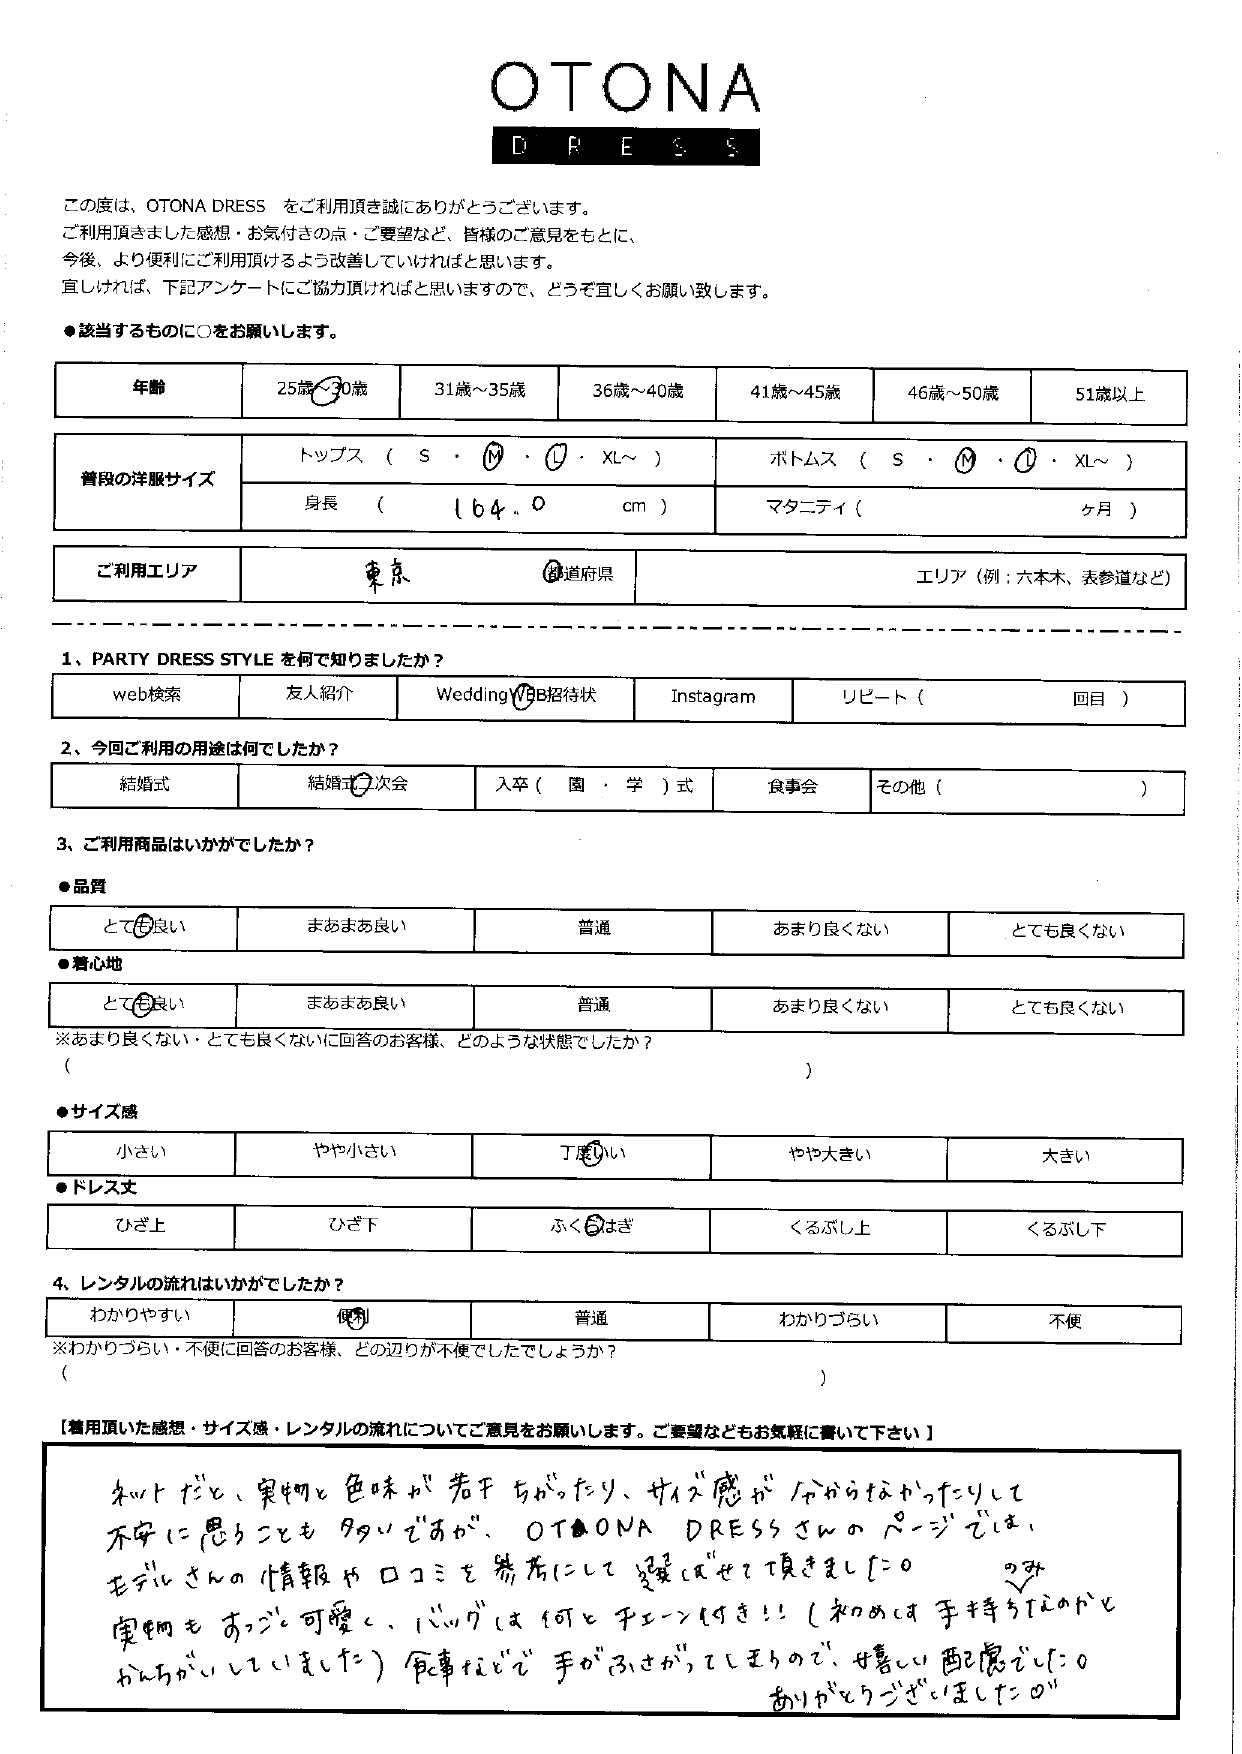 OTONA
DRESS
この度は、OTONA DRESS　をご利用頂き誠にありがとうございます。
ご利用頂きました感想・お気付きの点・ご要望など、皆様のご意見をもとに、
今後、より便利にご利用頂けるよう改善していければと思います。
宜しければ、下記アンケートにご協力頂ければと思いますので、どうぞ宜しくお願い致します。
●該当するものに○をお願いします。
年齢 25歳～30歳 31歳～35歳 36歳～40歳 41歳～45歳 46歳～50歳 51歳以上
普段の洋服サイズ トップス （ S ・ M ・ L ・ XL～ ） ボトムス （ S ・ M ・ L ・ XL～ ）
身長 （ 164.0 cm ） マタニティ（ ヶ月 ）
ご利用エリア 東京 都道府県 エリア（例：六本木、表参道など）
1、PARTY DRESS STYLE を何で知りましたか？
web検索 友人紹介 WeddingWEB招待状 Instagram リピート（ 回目 ）
2、今回ご利用の用途は何でしたか？
結婚式 結婚式二次会 入卒（ 園 ・ 学 ）式 食事会 その他（ ）
3、ご利用商品はいかがでしたか？
●品質
とても良い まあまあ良い 普通 あまり良くない とても良くない
●着心地
とても良い まあまあ良い 普通 あまり良くない とても良くない
※あまり良くない・とても良くないに回答のお客様、どのような状態でしたか？
（ ）
●サイズ感
小さい やや小さい 丁度いい やや大きい 大きい
●ドレス丈
ひざ上 ひざ下 ふくらはぎ くるぶし上 くるぶし下
4、レンタルの流れはいかがでしたか？
わかりやすい 便利 普通 わかりづらい 不便
※わかりづらい・不便に回答のお客様、どの辺りが不便でしたでしょうか？
（ ）
【着用頂いた感想・サイズ感・レンタルの流れについてご意見をお願いします。ご要望などもお気軽に書いて下さい 】
ネットだと、実物と色味が若干ちがったり、サイズ感が分からなかったりして
不安に思うことも多いですが、OTONA DRESSさんのページでは、
モデルさんの情報や口コミを参考にして選ばせて頂きました。
実物もすっごく可愛く、バッグは何とチェーン付き!!（初めは手持ちのみなのかと
かんちがいしていました）食事などで手がふさがってしまうので、嬉しい配慮でした。
ありがとうございました♡